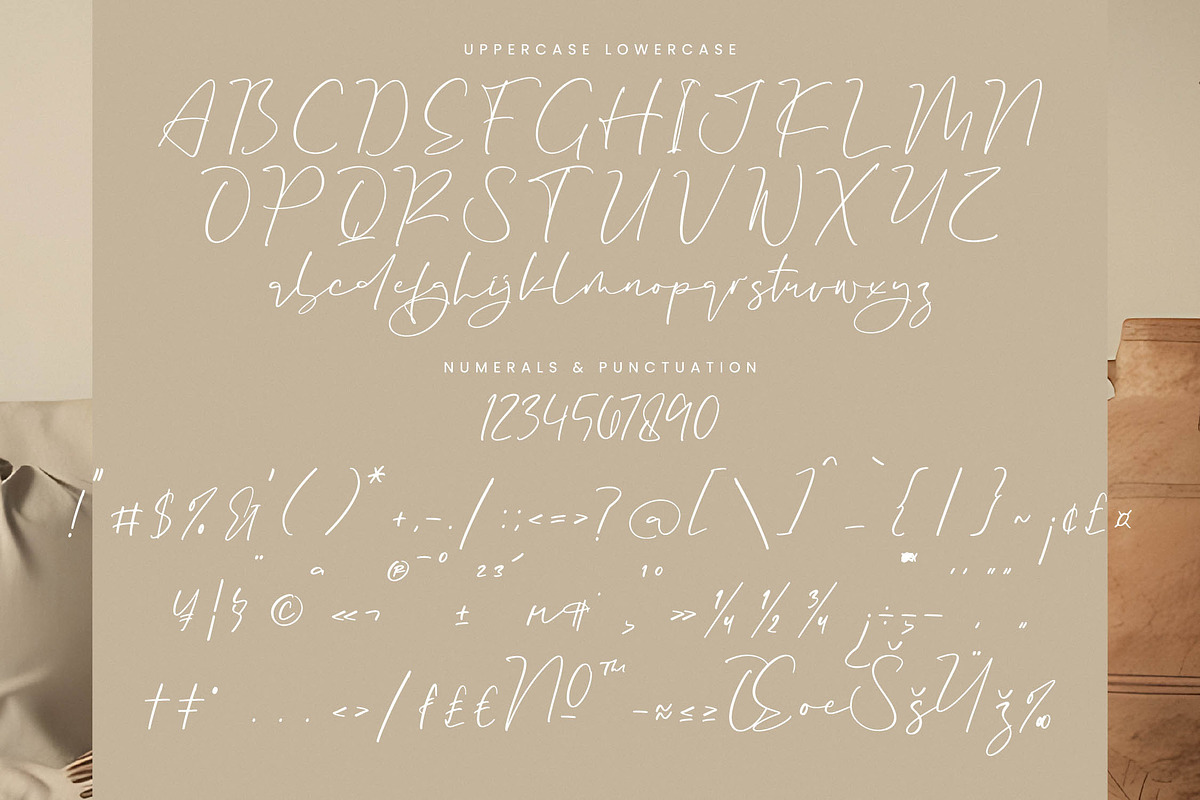 UPPERCASE LOWERCASE
ABCDEFGHIJKLMN
OPQRSTUVWXYZ
abcdefghijklmnopqrstuvwxyz
NUMERALS & PUNCTUATION
1234567890
!"#$%&'()*+,-./:;<=>?@[\]^_`{|}~¡¢£¤
¥¦§¨©ª«¬®¯°±²³´µ¶·¸¹º»¼½¾¿÷
†‡•...‹›⁄ƒ₤€№™−≈≤≥ŒœŠšŸž‰